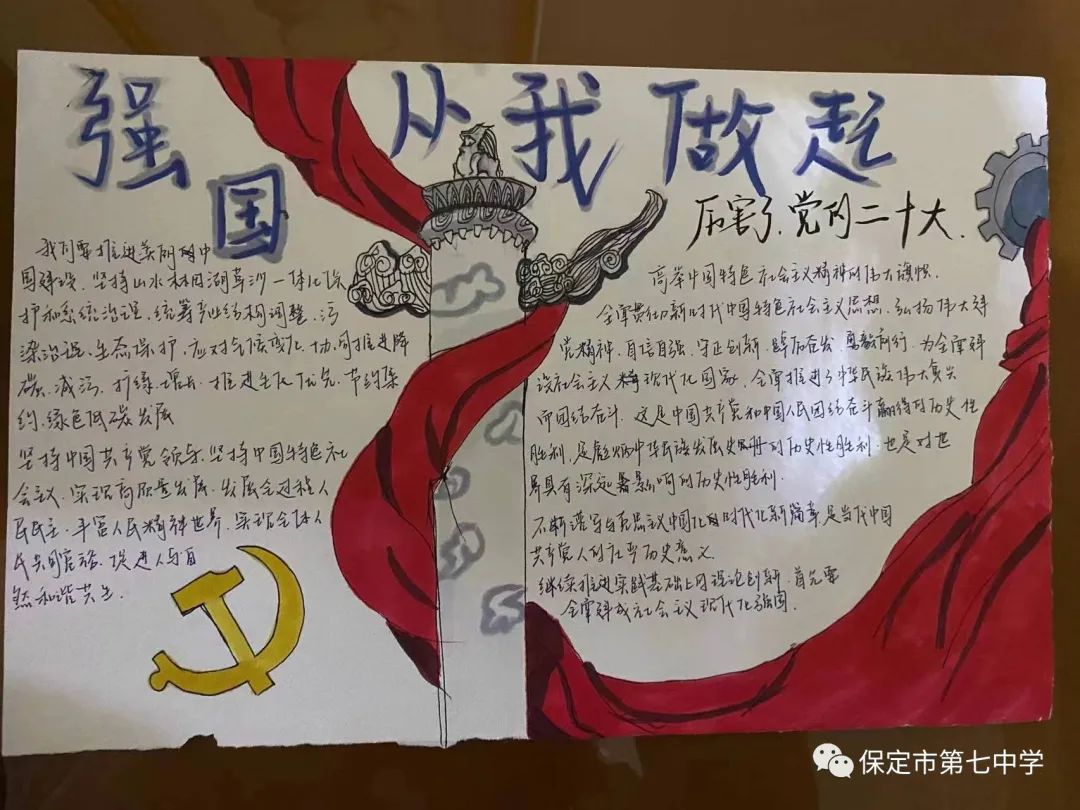 强国 从我做起
厉害了,党的二十大.
我们要推进美丽的中
国建设,坚持山水林田湖草沙一体化保
护和系统治理,统筹产业结构调整、污
染治理、生态保护、应对气候变化,协同推进降
碳、减污、扩绿、增长,推进生态优先、节约集
约、绿色低碳发展
坚持中国共产党领导,坚持中国特色社
会主义,实现高质量发展,发展全过程人
民民主,丰富人民精神世界,实现全体人
民共同富裕,促进人与自
然和谐共生.
高举中国特色社会主义精神的伟大旗帜.
全面贯彻新时代中国特色社会主义思想,弘扬伟大建
党精神,自信自强、守正创新,踔厉奋发、勇毅前行,为全面建
设社会主义现代化国家、全面推进中华民族伟大复兴
而团结奋斗.这是中国共产党和中国人民团结奋斗赢得的历史性
胜利,是彪炳中华民族发展史册的历史性胜利,也是对世
界具有深远影响的历史性胜利.
不断谱写马克思主义中国化的时代化新篇章,是当代中国
共产党人的庄严历史意义
继续推进实践基础上的理论创新,首先要
全面建成社会主义现代化强国.
保定市第七中学